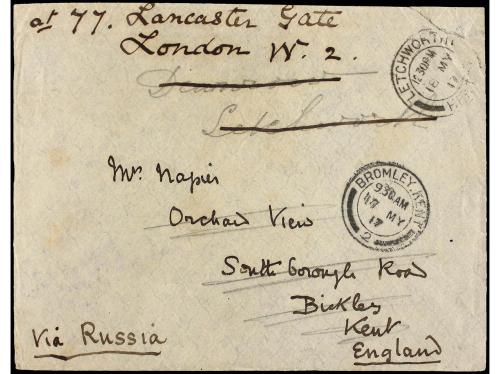 at 77. Lancaster Gate
London W. 2.
Letchworth
LETCHWORTH
12.30PM
16 MY
17
Mr. Napier
BROMLEY. KENT
9.30AM
17 MY
17
2
Orchard View
Southborough Road
Bickley
Kent
Via Russia
England